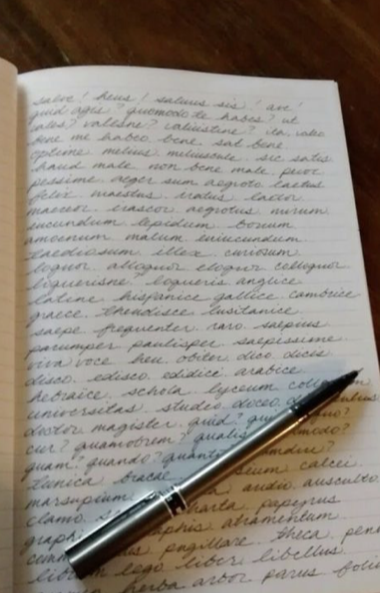 salve! heus! salvus sis! ave!
quid agis? quomodo te habes? ut
vales? valesne? valuistine? ita, valeo
bene me habeo. bene. sat bene
optime melius meliuscule. sic satis
haud male non bene male. peior
pessime. aeger sum aegroto laetus
felix maestus iratus laetor
maereor irascor aegrotus mirum
iucundum lepidum bonum
amoenum malum iniucundum
taediosum illex curiosum
loquor alloquor eloquor colloquor
loquerisne? loqueris anglice
latine hispanice gallice cambrice
graece theodisce lusitanice
saepe frequenter raro saepius
parumper paulisper saepissime
viva voce heu obiter dico duces
disco edisco edidici arabice
hebraice schola lyceum
universitas studeo doceo
doctor magister quid?
cur? quamobrem? qualis
quam? quando?
tunica bracae calcei
marsupium audio ausculto
clamo charta papyrus
atramentum
pugillare theca
lego liber libellus
herba arbor parus